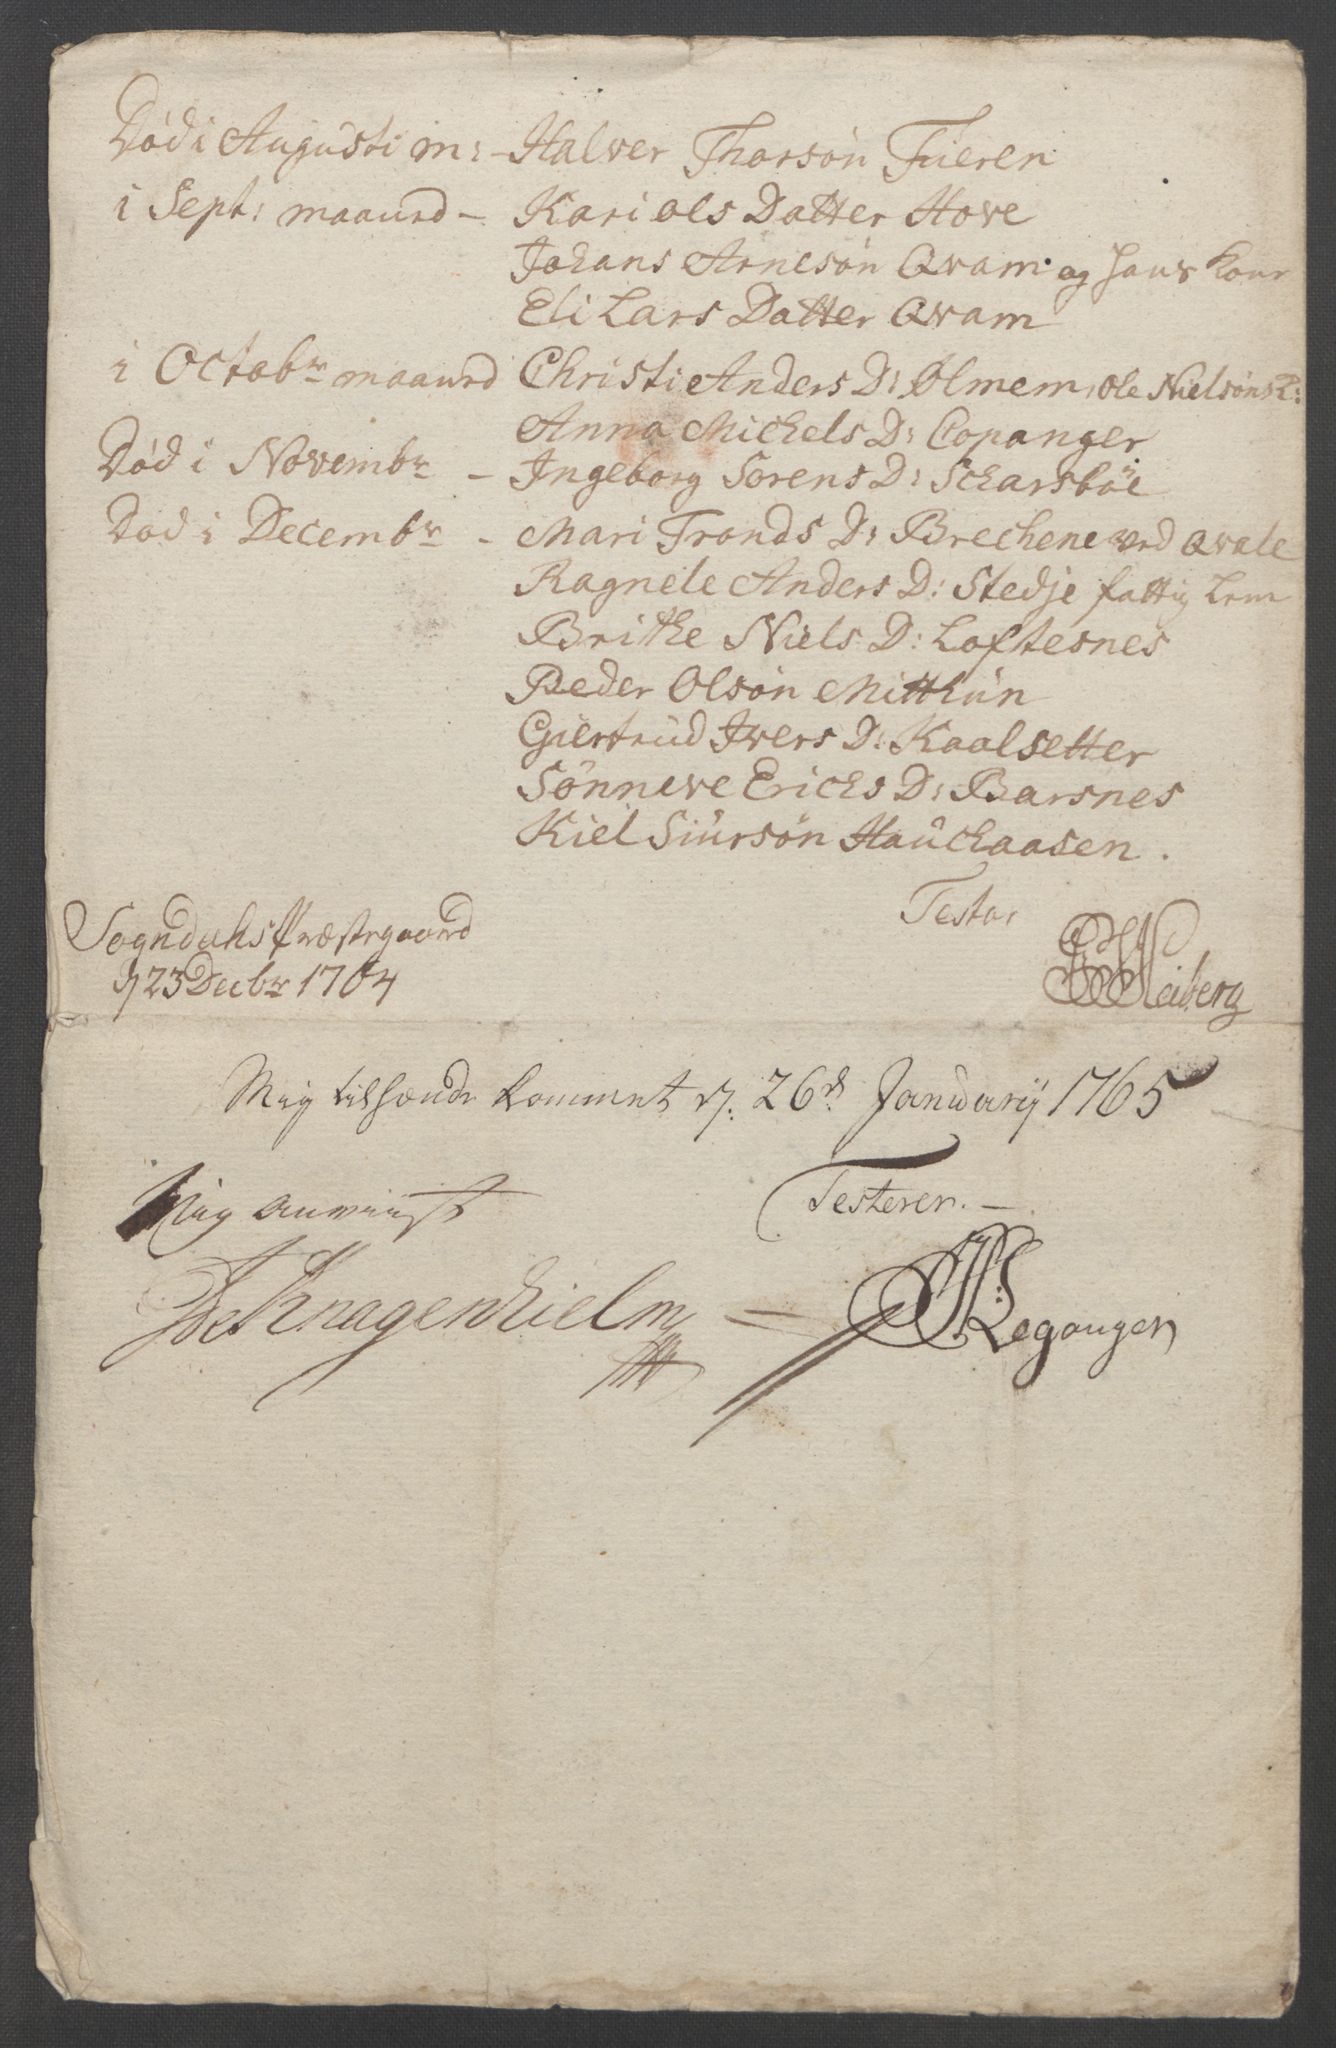 Død i Augusti m: - Halver Thorsøn Fueren
i Sept: maaned - Kari Ols Datter Hove
Johans Arnesøn Qvam og hans Kone
Eli Lars Datter Qvam
i Octobr maaned Christi Anders D: Ølmem, Ole Nielsøns K:
Anna Michels D: Copanger
Død i Novembr - Ingeborg Sørens D: Scharsbøe
Død i Decembr - Mari Tronds D: Brechene ved Qvale
Ragnele Anders D: Stedje fattig Lem
Brithe Niels D: Loftesnes
Peder Olsøn Mitthun
Giertrud Ivers D: Kaalsetter
Sønneve Erichs D: Barsnes
Kiel Siursøn Hauchaasen.
Testor
Sogndahls Præstegaard
d 23 Decbr 1764
Heiberg
Mig tilhænde kommet d. 26de Januarij 1765
Testerer. -
Mig anviist
De Knagenhielm
Leganger